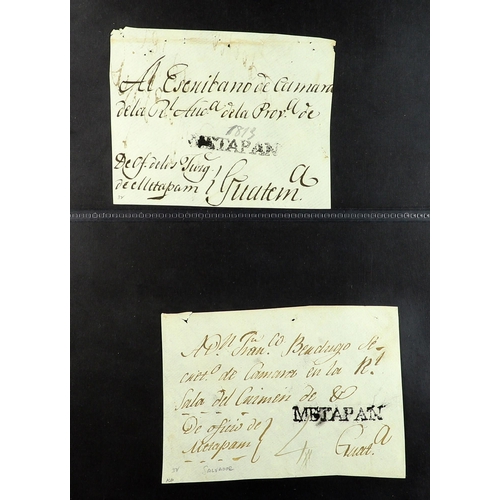 Al Escribano de Camara
de la Rl Auca de la Prova de
1813
METAPAN
De of. de los
de Metapam Guatema
Franco Bendugo Se-
creto de Camara en la Rl
Sala del Crimen de &
METAPAN
De oficio de
Metapam Guata
SALVADOR